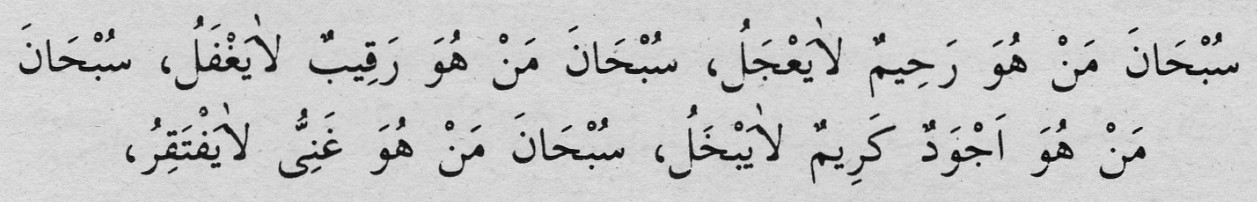 سُبْحَانَ مَنْ هُوَ رَحِيمٌ لاٰيَعْجَلُ، سُبْحَانَ مَنْ هُوَ رَقِيبٌ لاٰيَغْفَلُ، سُبْحَانَ
مَنْ هُوَ اَجْوَدٌ كَرِيمٌ لاٰيَبْخَلُ، سُبْحَانَ مَنْ هُوَ غَنِىُّ لاٰيَفْتَقِرُ،